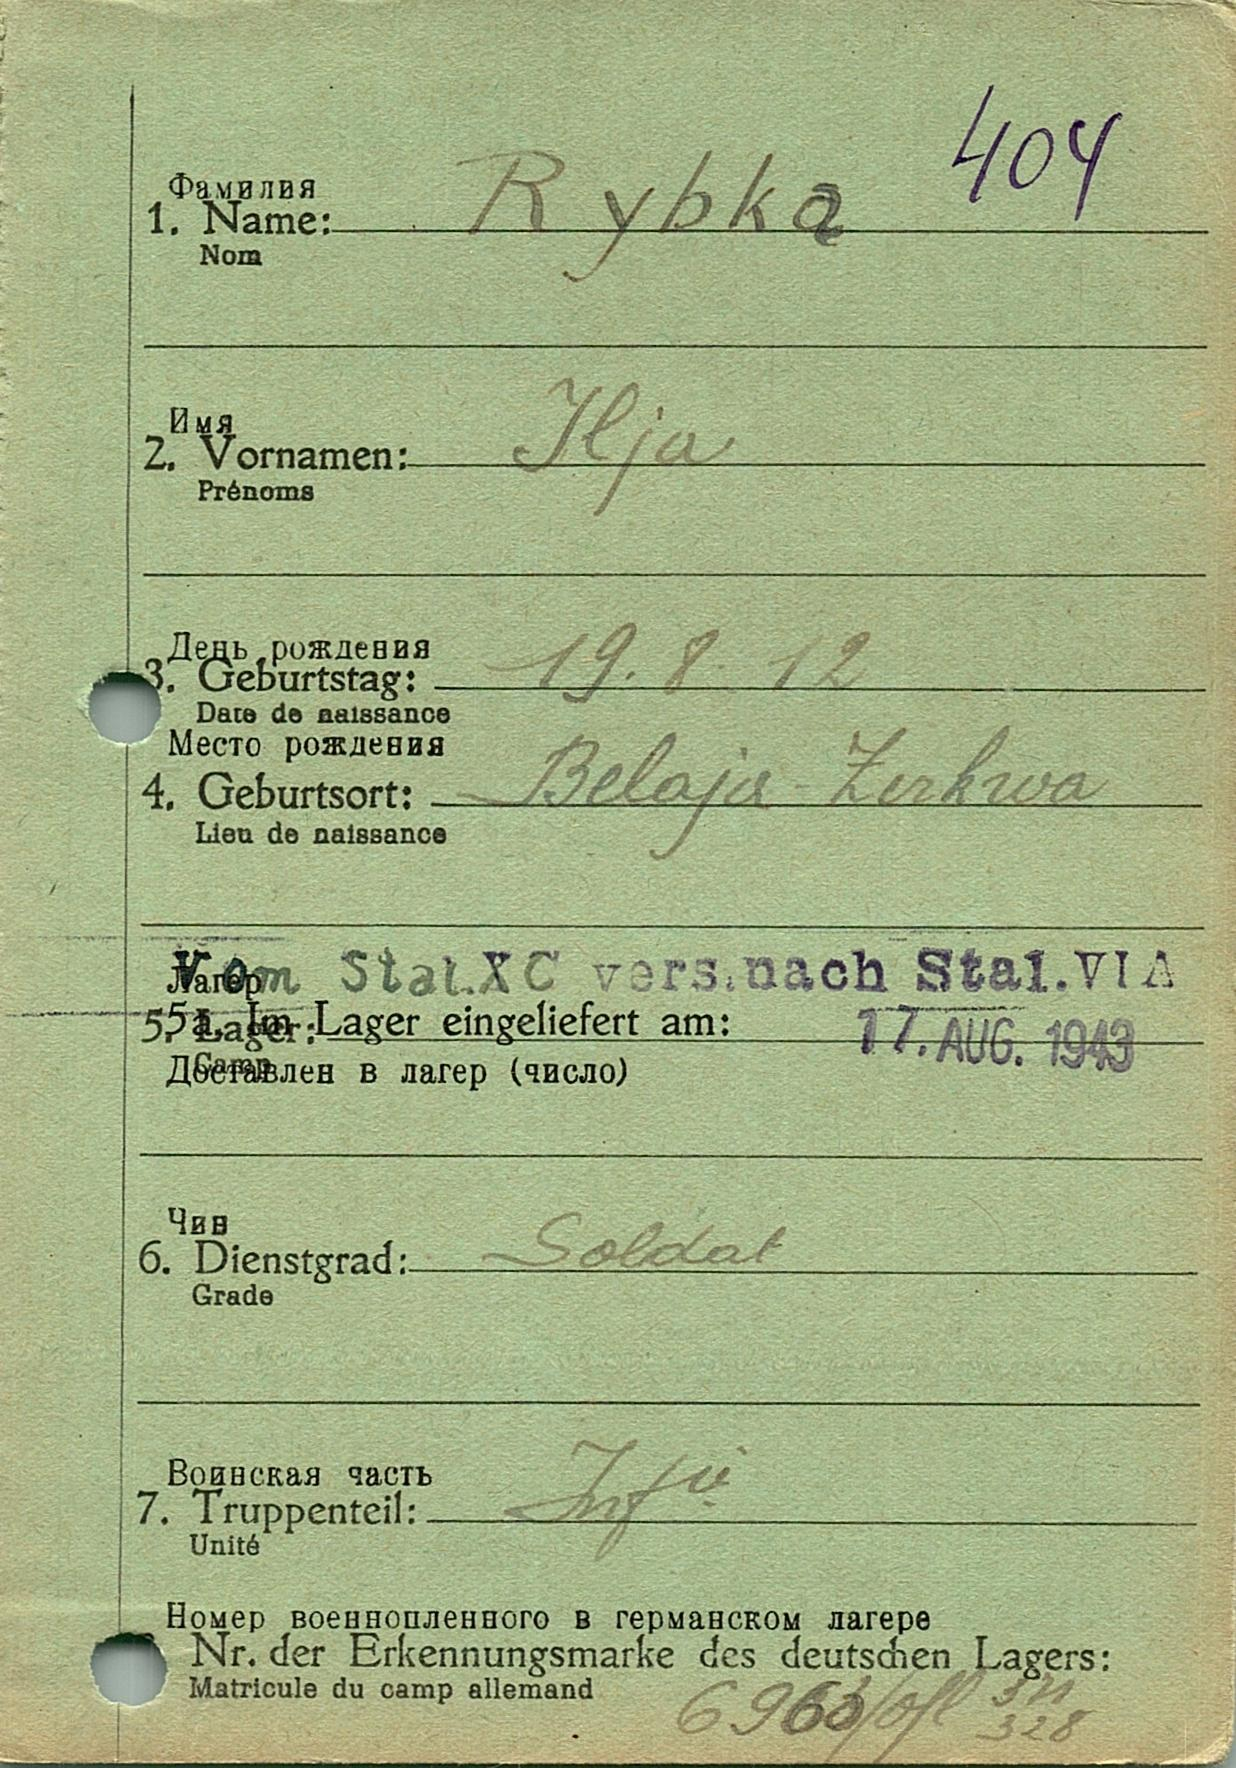 404
Фамилия
1. Name: Rybka
Nom
Имя
2. Vornamen: Ilja
Prénoms
День рождения
3. Geburtstag: 19.8.12
Date de naissance
Место рождения
4. Geburtsort: Belaja-Zerkwa
Lieu de naissance
Vom Stal.XC vers.nach Stal.VIA
Лагер
5. Lager:
5a. Im Lager eingeliefert am: 17. AUG. 1943
Camp
Доставлен в лагер (число)
Чин
6. Dienstgrad: Soldat
Grade
Воинская часть
7. Truppenteil: Inf
Unité
Номер военнопленного в германском лагере
Nr. der Erkennungsmarke des deutschen Lagers:
Matricule du camp allemand
328